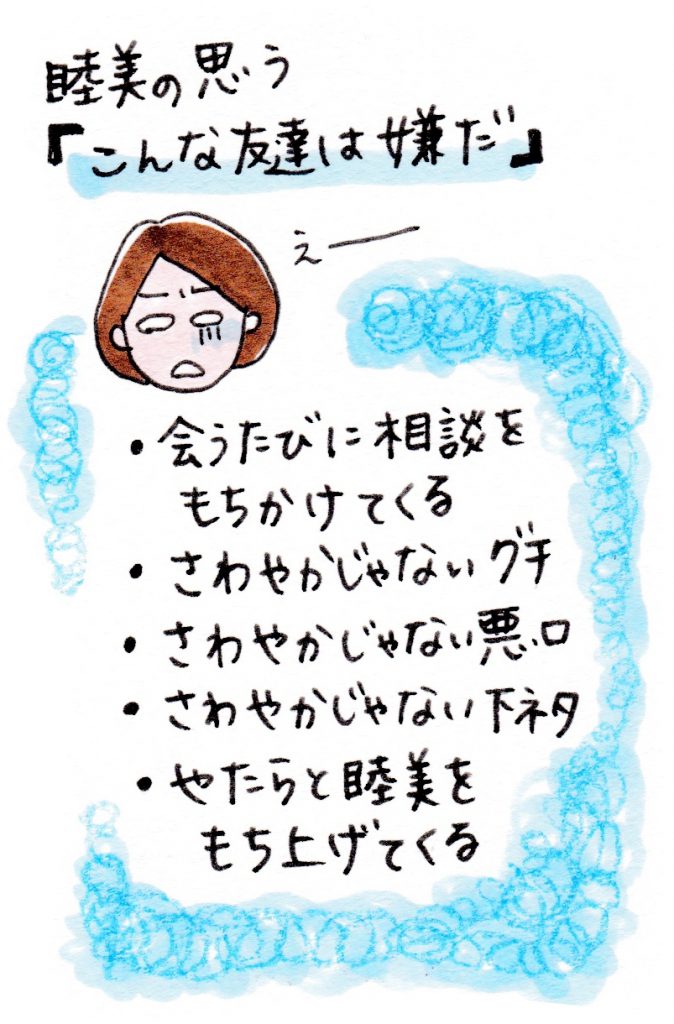 睦美の思う
『こんな友達は嫌だ』
えー
・会うたびに相談を
もちかけてくる
・さわやかじゃないグチ
・さわやかじゃない悪口
・さわやかじゃない下ネタ
・やたらと睦美を
もち上げてくる